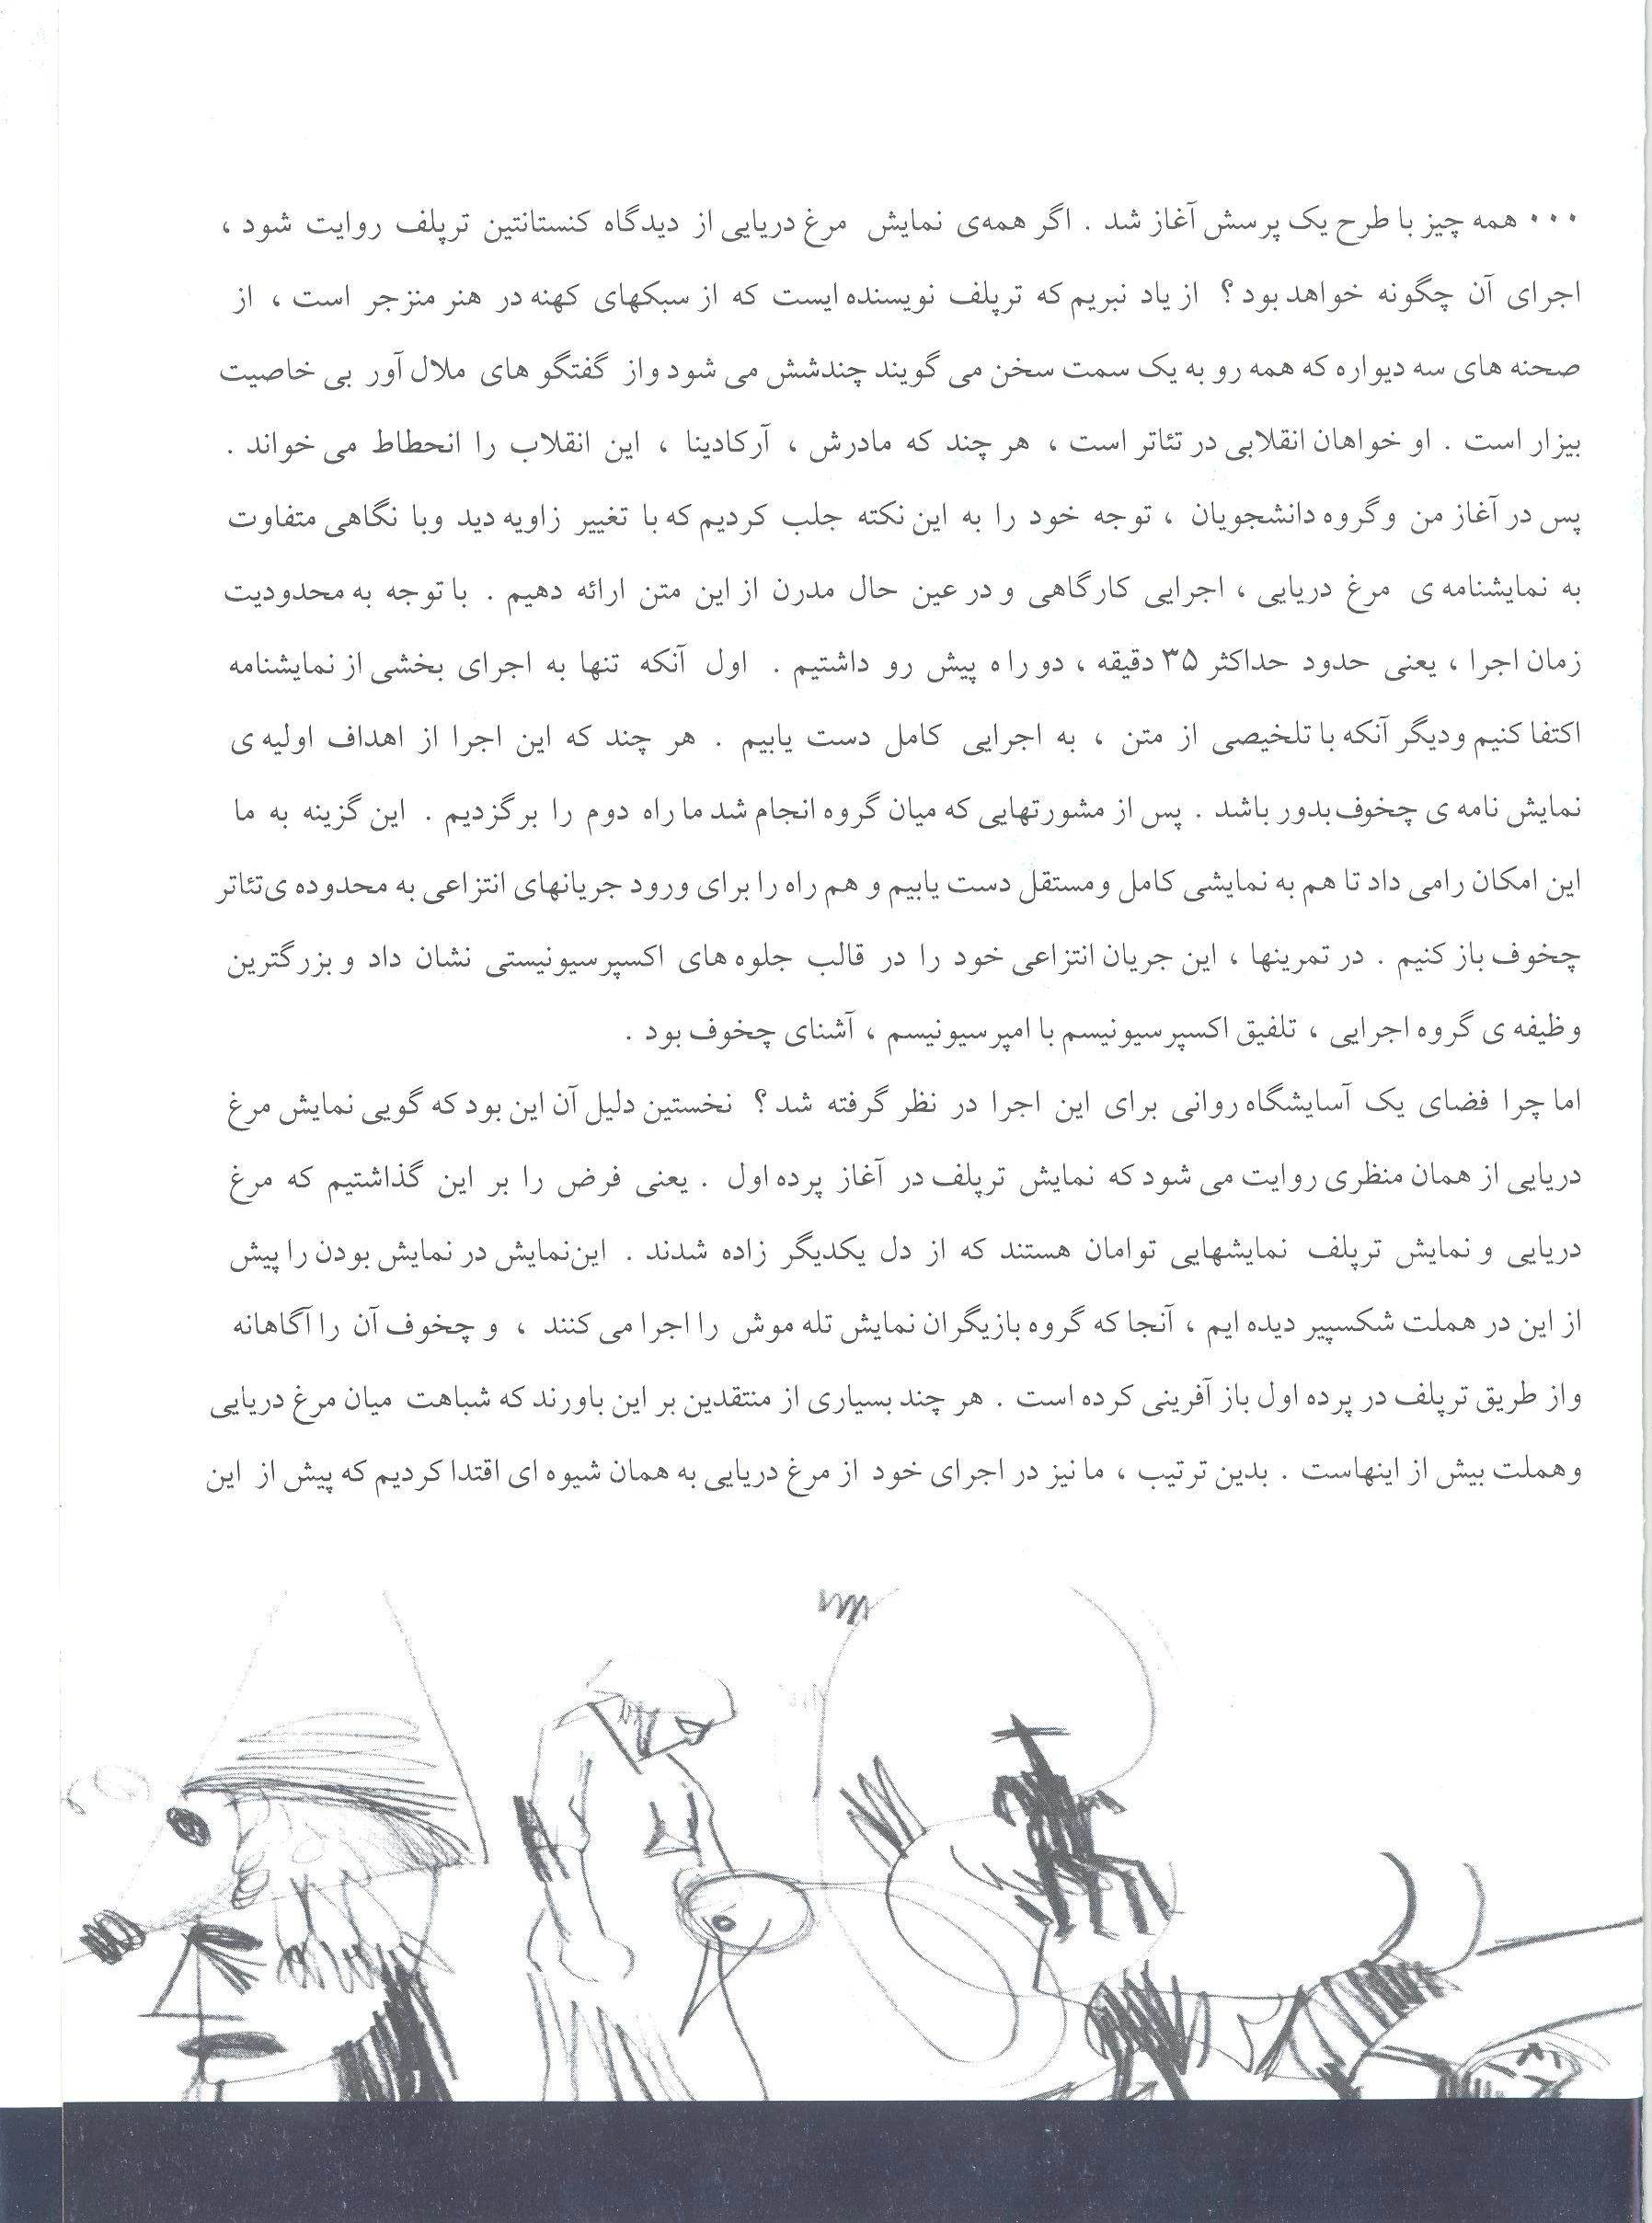 ... همه چیز با طرح یک پرسش آغاز شد . اگر همه‌ی نمایش مرغ دریایی از دیدگاه کنستانتین ترپلف روایت شود ،
اجرای آن چگونه خواهد بود ؟ از یاد نبریم که ترپلف نویسنده ایست که از سبکهای کهنه در هنر منزجر است ، از
صحنه های سه دیواره که همه رو به یک سمت سخن می گویند چندشش می شود واز گفتگو های ملال آور بی خاصیت
بیزار است . او خواهان انقلابی در تئاتر است ، هر چند که مادرش ، آرکادینا ، این انقلاب را انحطاط می خواند .
پس در آغاز من وگروه دانشجویان ، توجه خود را به این نکته جلب کردیم که با تغییر زاویه دید وبا نگاهی متفاوت
به نمایشنامه ی مرغ دریایی ، اجرایی کارگاهی و در عین حال مدرن از این متن ارائه دهیم . با توجه به محدودیت
زمان اجرا ، یعنی حدود حداکثر ۳۵ دقیقه ، دو راه پیش رو داشتیم . اول آنکه تنها به اجرای بخشی از نمایشنامه
اکتفا کنیم ودیگر آنکه با تلخیصی از متن ، به اجرایی کامل دست یابیم . هر چند که این اجرا از اهداف اولیه ی
نمایش نامه ی چخوف بدور باشد . پس از مشورتهایی که میان گروه انجام شد ما راه دوم را برگزدیم . این گزینه به ما
این امکان رامی داد تا هم به نمایشی کامل ومستقل دست یابیم و هم راه را برای ورود جریانهای انتزاعی به محدوده ی تئاتر
چخوف باز کنیم . در تمرینها ، این جریان انتزاعی خود را در قالب جلوه های اکسپرسیونیستی نشان داد و بزرگترین
وظیفه ی گروه اجرایی ، تلفیق اکسپرسیونیسم با امپرسیونیسم ، آشنای چخوف بود .
اما چرا فضای یک آسایشگاه روانی برای این اجرا در نظر گرفته شد ؟ نخستین دلیل آن این بود که گویی نمایش مرغ
دریایی از همان منظری روایت می شود که نمایش ترپلف در آغاز پرده اول . یعنی فرض را بر این گذاشتیم که مرغ
دریایی و نمایش ترپلف نمایشهایی توامان هستند که از دل یکدیگر زاده شدند . این‌نمایش در نمایش بودن را پیش
از این در هملت شکسپیر دیده ایم ، آنجا که گروه بازیگران نمایش تله موش را اجرا می کنند ، و چخوف آن را آگاهانه
واز طریق ترپلف در پرده اول باز آفرینی کرده است . هر چند بسیاری از منتقدین بر این باورند که شباهت میان مرغ دریایی
وهملت بیش از اینهاست . بدین ترتیب ، ما نیز در اجرای خود از مرغ دریایی به همان شیوه ای اقتدا کردیم که پیش از این